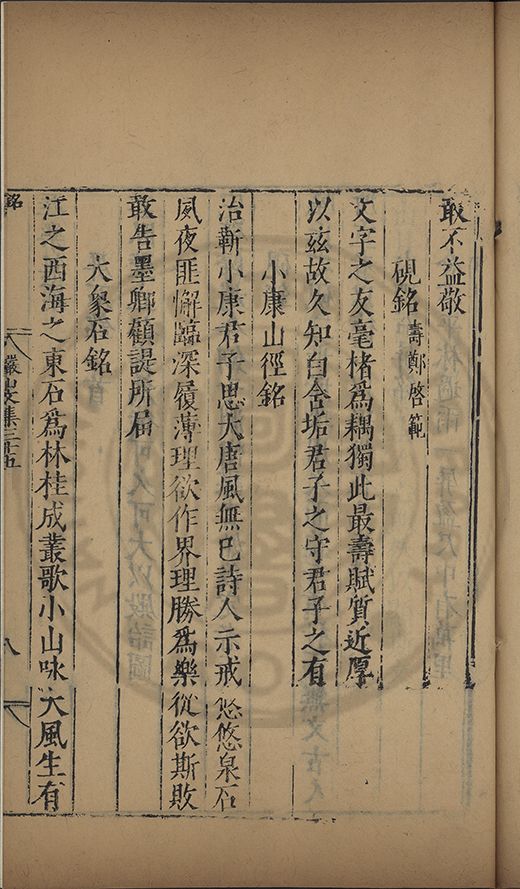 敢不益敬
硯銘 壽鄭啓範
文字之友毫楮爲耦獨此最壽賦質近厚
以兹故久知白舍垢君子之守君子之有
小康山徑銘
治蘄小康君子思大唐風無已詩人示戒悠悠泉石
夙夜匪懈臨深履薄理欲作界理勝爲樂從欲斯敗
敢告墨卿顧諟所届
大衆石銘
江之西海之東石爲林桂成叢歌小山咏大風生有
銘
文集三十五
八